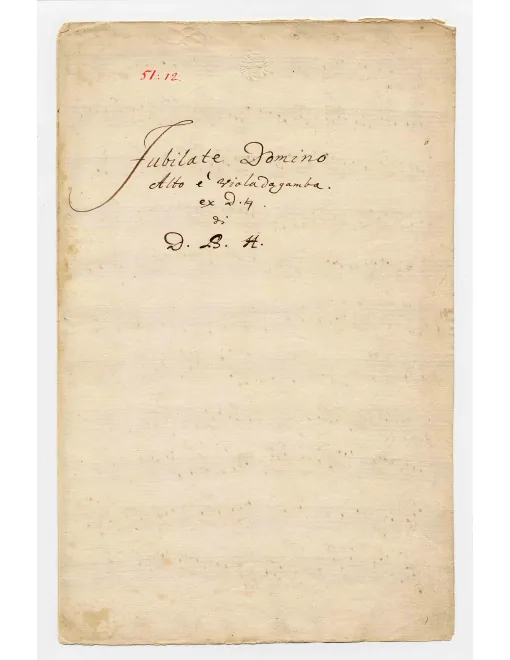 51:12.
Jubilate Domino
Alto è Violadagamba.
ex D.♮.
di
D. B. H.